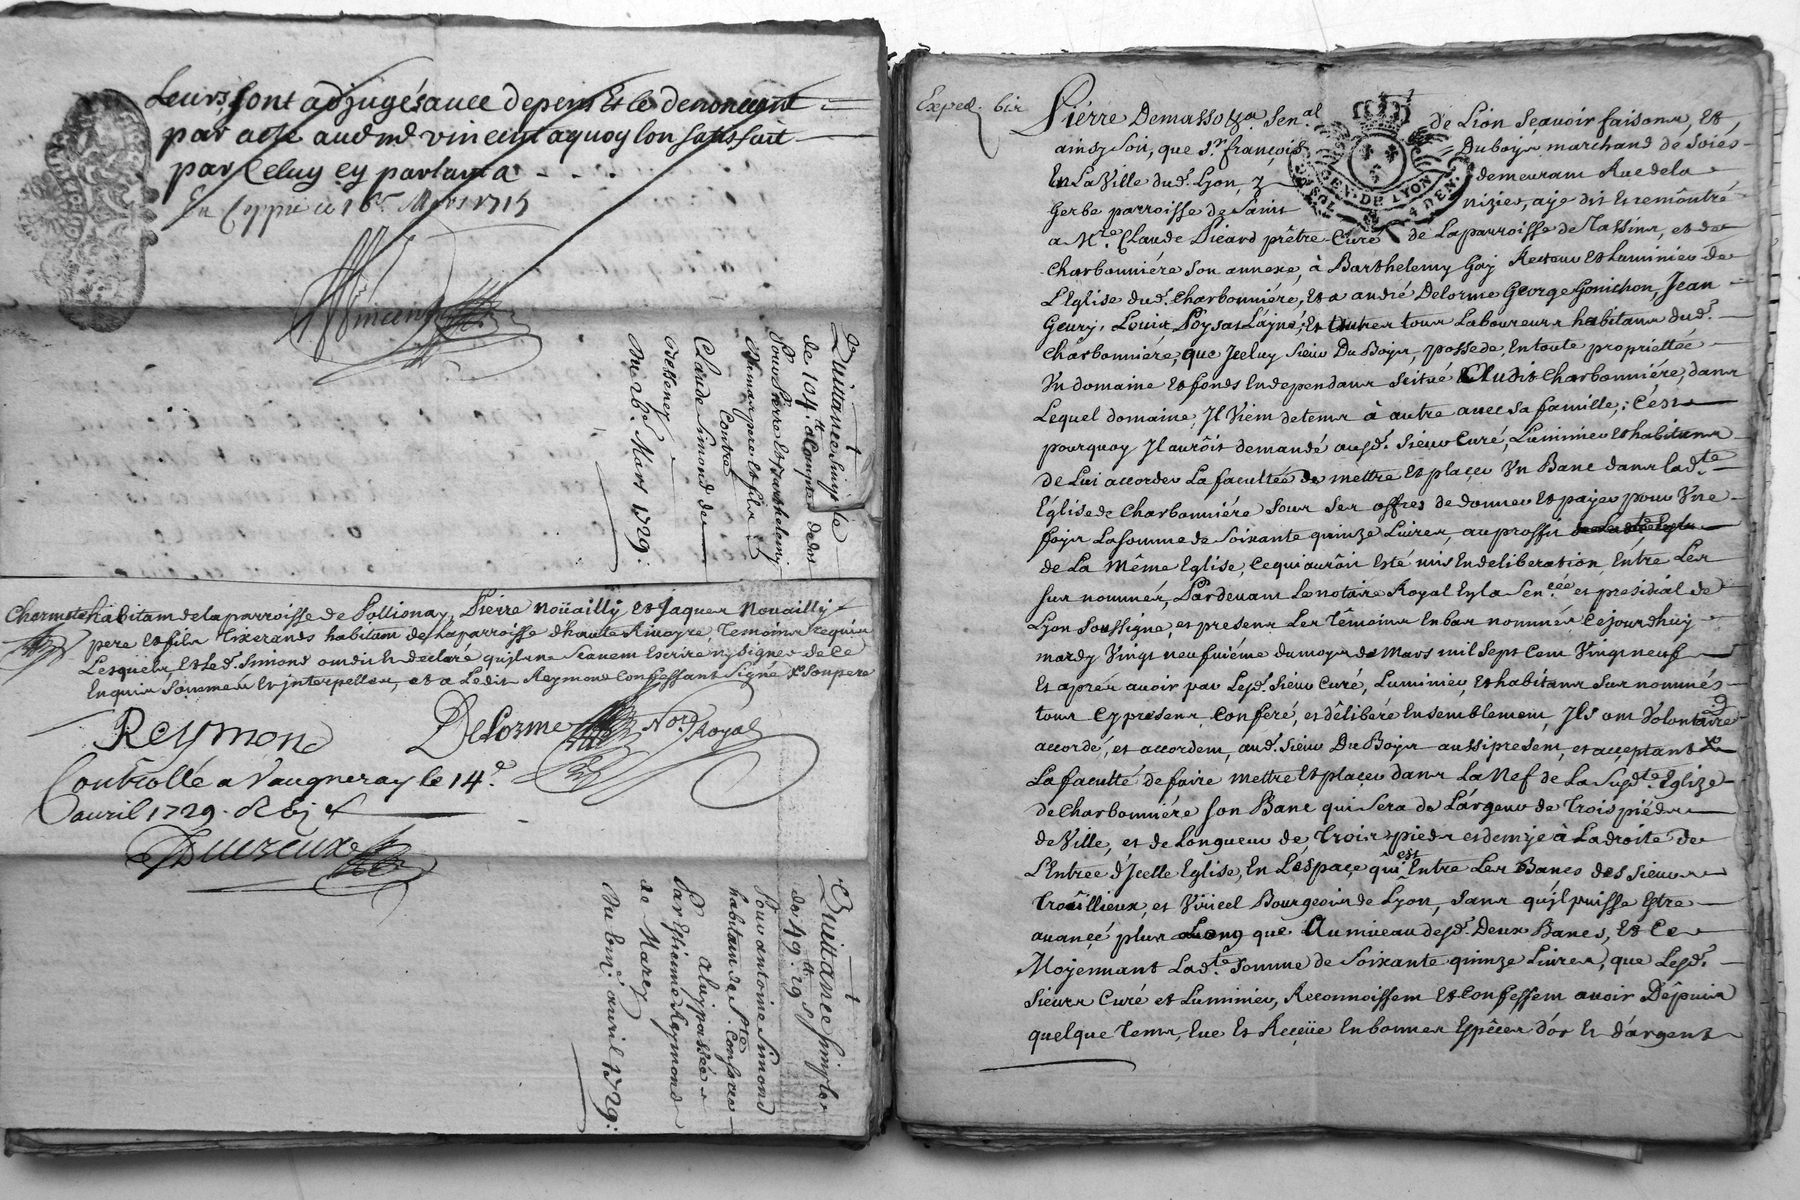 Leurs sont adjugés avec depens Et le denoncent
par acte aud. me vincent a quoy lon satisfait
par Celuy cy parlant a
16e. Mars 1715
Vincent
Quittance simple
de 104.tt a Compte de dot
Pour Pierre Et Barthelemy
pere et fils
Contre
Claude Simond de
Messeney
Du 2e. Mars 1729:
habitant de la parroisse de Pollionay, Pierre Noüailly et Jaques Noüailly
pere et fils Tixerands habitans de la parroisse d'haute Rivoyre, Temoins requis
Lesquels, et led. Simond ont dit et declaré qu'ils ne scavent Escrire ny signer de ce
Enquis sommés et jnterpellés, et a Ledit Reymond Confessant signé et son pere
Reymond
Delorme Not.re Royal
Controllé a Vaugneray le 14e.
avril 1729.
Quittance simple
de 49.tt 19s
Pour antoine Simond
habitant de Ste. Consorce
a luy passée
Par Etienne Reymond
de Marcy
avril 1729:
Exped. bis
Pierre Demassotza Sen.al de Lion sçavoir faisons, Et,
ainsy soit, que Sr. françois Duboys marchand de soies
En La Ville dud. Lyon, y demeurant Rue de la
Gerbe parroisse de Saint nizier, aye dit et remontré
a Mre. Claude Picard prêtre Curé de La parroisse de Tassins, et de
Charbonniére son annexe, à Barthelemy Gay Recteur et Luminier de
L'Eglise dud. Charbonniére, Et a andré Delorme George Gonichon, Jean
Geury, Louis Poysat L'ayné, Et autres tous Laboureurs habitans dud.
Charbonniére, que Jceluy Sieur Du Boys, possede, En toute proprietteé
Un domaine et fonds Independans scitué Audit Charbonniére, dans
Lequel domaine, Jl Vient de tems à autre avec sa famille; C'est
pourquoy Jl auroit demandé ausd. Sieur Curé, Luminier et habitans
de Lui accorder La facultée de mettre et placer Un Banc dans lad.te
Église de Charbonniére sous ses offres de donner et payer pour Une
foys La somme de soixante quinze Livres, au proffit de Lad.te Eglise
de La Même Eglise, Ce qui auroit esté mis En deliberation, Entre Les
sus nommés, Pardevant Le notaire Royal En la Sen.cée et presidial de
Lyon soussigné, et presens Les Témoins En bas nommés Cejourdhuy
mardy Vingt neufuiéme du moys de Mars mil sept Cent Vingt neuf
Et aprés avoir par Lesd. Sieur Curé, Luminier, et habitans sus nommés
tous Cy presens, Conferé, et délibéré Ensemblement, Jls ont Volontairet
accordé, et accordent, aud. Sieur Du Boys aussi present, et acceptant
La faculté de faire mettre et placer dans La Nef de La susd.te Eglize
de Charbonniére son Banc qui sera de Largeur de Trois piéds
de Ville, et de Longueur de Trois pieds et demy à La droite de
L'Entrée d'Jcelle Eglise, En L'espace qui est Entre Les Bancs des Sieurs
Trouillieux, et Bourgeois de Lyon, sans qu'jl puisse Estre
avancé plus Long que Au niveau desd. Deux Bancs, Et Ce
Moyennant Lad.te somme de soixante quinze Livres, que Lesd.
Sieurs Curé et Luminier, Reconnoissent et Confessent avoir Depuis
quelque Tems, Eue Et Reçüe En bonnes Espêces d'or et d'argent